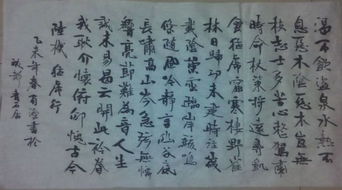 渴不飲盜泉水熱不
息惡木陰惡木豈無
枝志士多苦心整駕肅
時命杖策將遠尋飢
食猛虎窟寒棲野雀
林日歸功未建時往歲
載陰崇雲臨岸駭鳴
條隨風吟靜言幽谷底
長嘯高山岑急弦無懦
響亮節難為音人生
誠未易曷云開此衿眷
我耿介懷俯仰愧古今
陸機猛虎行
乙未年春書於
成都